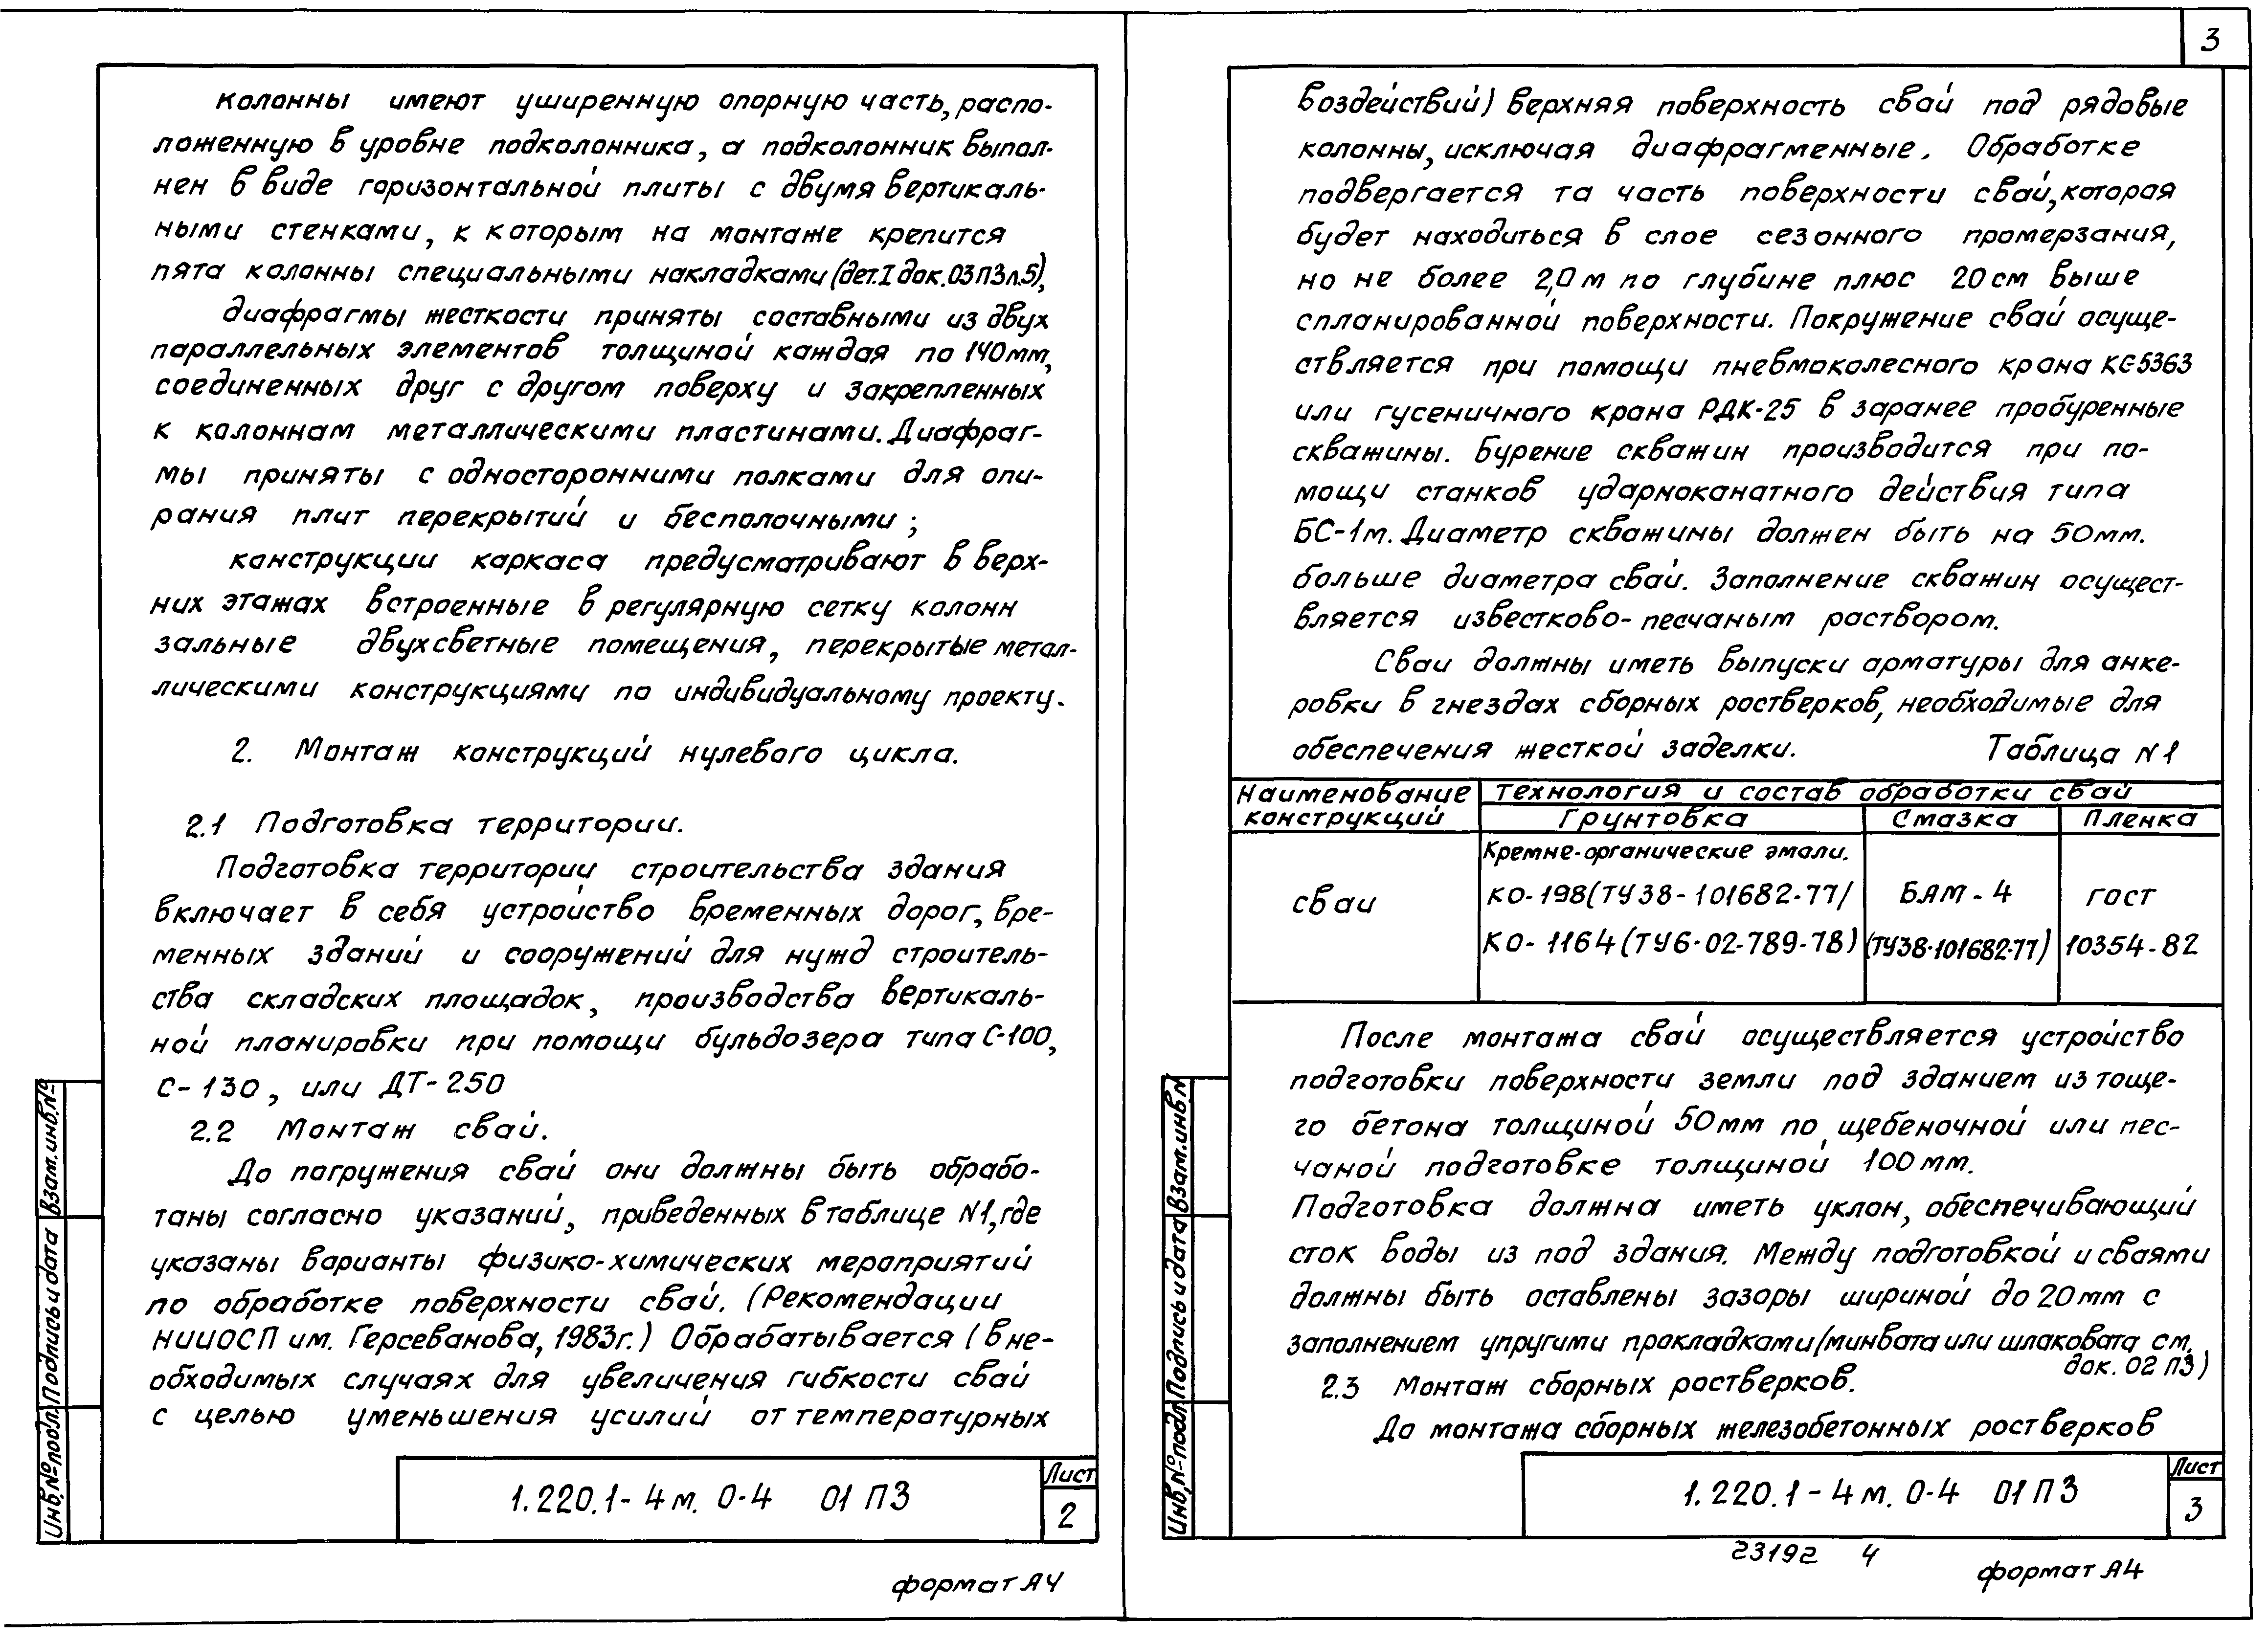 колонны имеют уширенную опорную часть, распо-
ложенную в уровне подколонника, а подколонник выпол-
нен в виде горизонтальной плиты с двумя вертикаль-
ными стенками, к которым на монтаже крепится
пята колонны специальными накладками (дет. I док. 03ПЗ л.5),
диафрагмы жесткости приняты составными из двух
параллельных элементов толщиной каждая по 140мм,
соединенных друг с другом поверху и закрепленных
к колоннам металлическими пластинами. Диафраг-
мы приняты с односторонними полками для опи-
рания плит перекрытий и бесполочными;
конструкции каркаса предусматривают в верх-
них этажах встроенные в регулярную сетку колонн
зальные двухсветные помещения, перекрытые метал-
лическими конструкциями по индивидуальному проекту.
2. Монтаж конструкций нулевого цикла.
2.1 Подготовка территории.
Подготовка территории строительства здания
включает в себя устройство временных дорог, вре-
менных зданий и сооружений для нужд строитель-
ства складских площадок, производства вертикаль-
ной планировки при помощи бульдозера типа С-100,
С-130, или ДТ-250
2.2 Монтаж свай.
До погружения свай они должны быть обрабо-
таны согласно указаний, приведенных в таблице N1, где
указаны варианты физико-химических мероприятий
по обработке поверхности свай. (Рекомендации
НИИОСП им. Герсеванова, 1983г.) Обрабатывается (в не-
обходимых случаях для увеличения гибкости свай
с целью уменьшения усилий от температурных
Взам. инв. №
Подпись и дата
Инв. № подл.
1.220.1-4м. 0-4 01 ПЗ
Лист
2
формат А4
3
воздействий) верхняя поверхность свай под рядовые
колонны, исключая диафрагменные. Обработке
подвергается та часть поверхности свай, которая
будет находиться в слое сезонного промерзания,
но не более 2,0 м по глубине плюс 20 см выше
спланированной поверхности. Покружение свай осуще-
ствляется при помощи пневмоколесного крана КС-5363
или гусеничного крана РДК-25 в заранее пробуренные
скважины. Бурение скважин производится при по-
мощи станков ударноканатного действия типа
БС-1м. Диаметр скважины должен быть на 50мм.
больше диаметра свай. Заполнение скважин осущест-
вляется известково-песчаным раствором.
Сваи должны иметь выпуски арматуры для анке-
ровки в гнездах сборных ростверков, необходимые для
обеспечения жесткой заделки. Таблица N1
Наименование конструкций
Технология и состав обработки свай
Грунтовка Смазка Пленка
Кремне-органические эмали.
сваи КО-198(ТУ38-101682-77/ БАМ-4 гост
КО-1164 (ТУ6-02-789-78) (ТУ38-101682-77) 10354-82
После монтажа свай осуществляется устройство
подготовки поверхности земли под зданием из тоще-
го бетона толщиной 50мм по щебеночной или пес-
чаной подготовке толщиной 100мм.
Подготовка должна иметь уклон, обеспечивающий
сток воды из под здания. Между подготовкой и сваями
должны быть оставлены зазоры шириной до 20мм с
заполнением упругими прокладками (минвата или шлаковата см.
док. 02 ПЗ)
2.3 Монтаж сборных ростверков.
До монтажа сборных железобетонных ростверков
Взам. инв. N
Подпись и дата
Инв. № подл
1.220.1-4м. 0-4 01 ПЗ
Лист
3
23192 4
формат А4